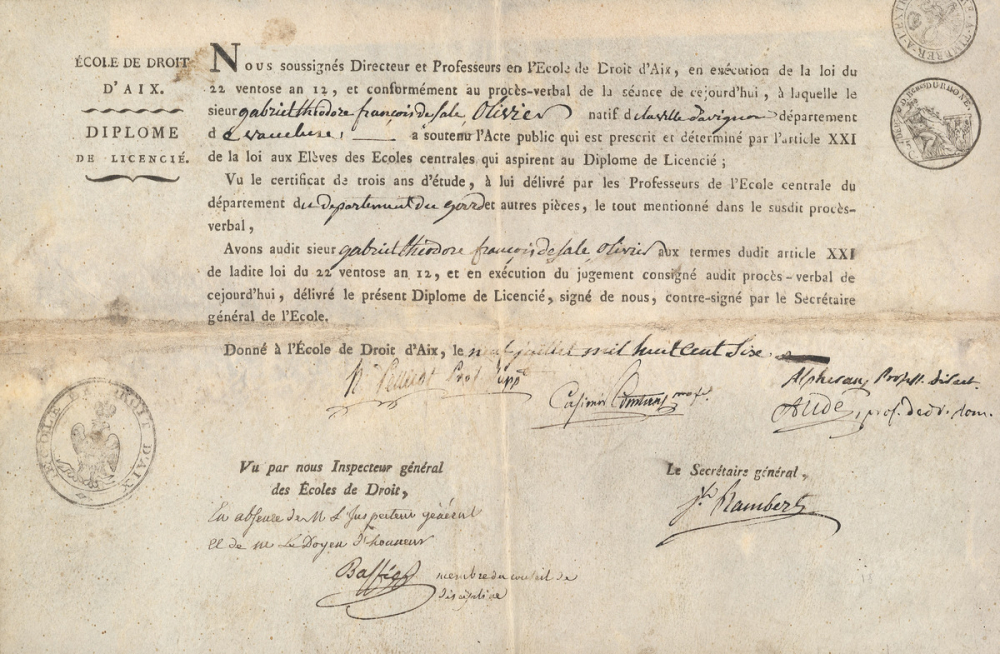 ÉCOLE DE DROIT
D'AIX.
DIPLOME
DE LICENCIÉ.
Nous soussignés Directeur et Professeurs en l'Ecole de Droit d'Aix, en exécution de la loi du
22 ventose an 12, et conformément au procès-verbal de la séance de cejourd'hui, à laquelle le
sieur gabriel théodore françois de Sale, Olivier natif de la ville d'avignon département
de vaucluse, a soutenu l'Acte public qui est prescrit et déterminé par l'article XXI
de la loi aux Elèves des Ecoles centrales qui aspirent au Diplome de Licencié ;
Vu le certificat de trois ans d'étude, à lui délivré par les Professeurs de l'Ecole centrale du
département du departement du gard et autres pièces, le tout mentionné dans le susdit procès-
verbal,
Avons audit sieur gabriel théodore françois de Sale, Olivier aux termes dudit article XXI
de ladite loi du 22 ventose an 12, et en exécution du jugement consigné audit procès-verbal de
cejourd'hui, délivré le présent Diplome de Licencié, signé de nous, contre-signé par le Secrétaire
général de l'École.
Donné à l'École de Droit d'Aix, le neuf juillet mil huit Cent Six.
Prof. Supp.
Alpheran Profess. di
Casimir prof.
Aude, prof. de dr. rom.
L'ECOLE DE DROIT D'AIX
Vu par nous Inspecteur général
des Écoles de Droit,
En absence de M. L'Inspecteur général
et de M. Le Doyen d'honneur
membre du conseil de
discipline
Le Secrétaire général,
Rambert